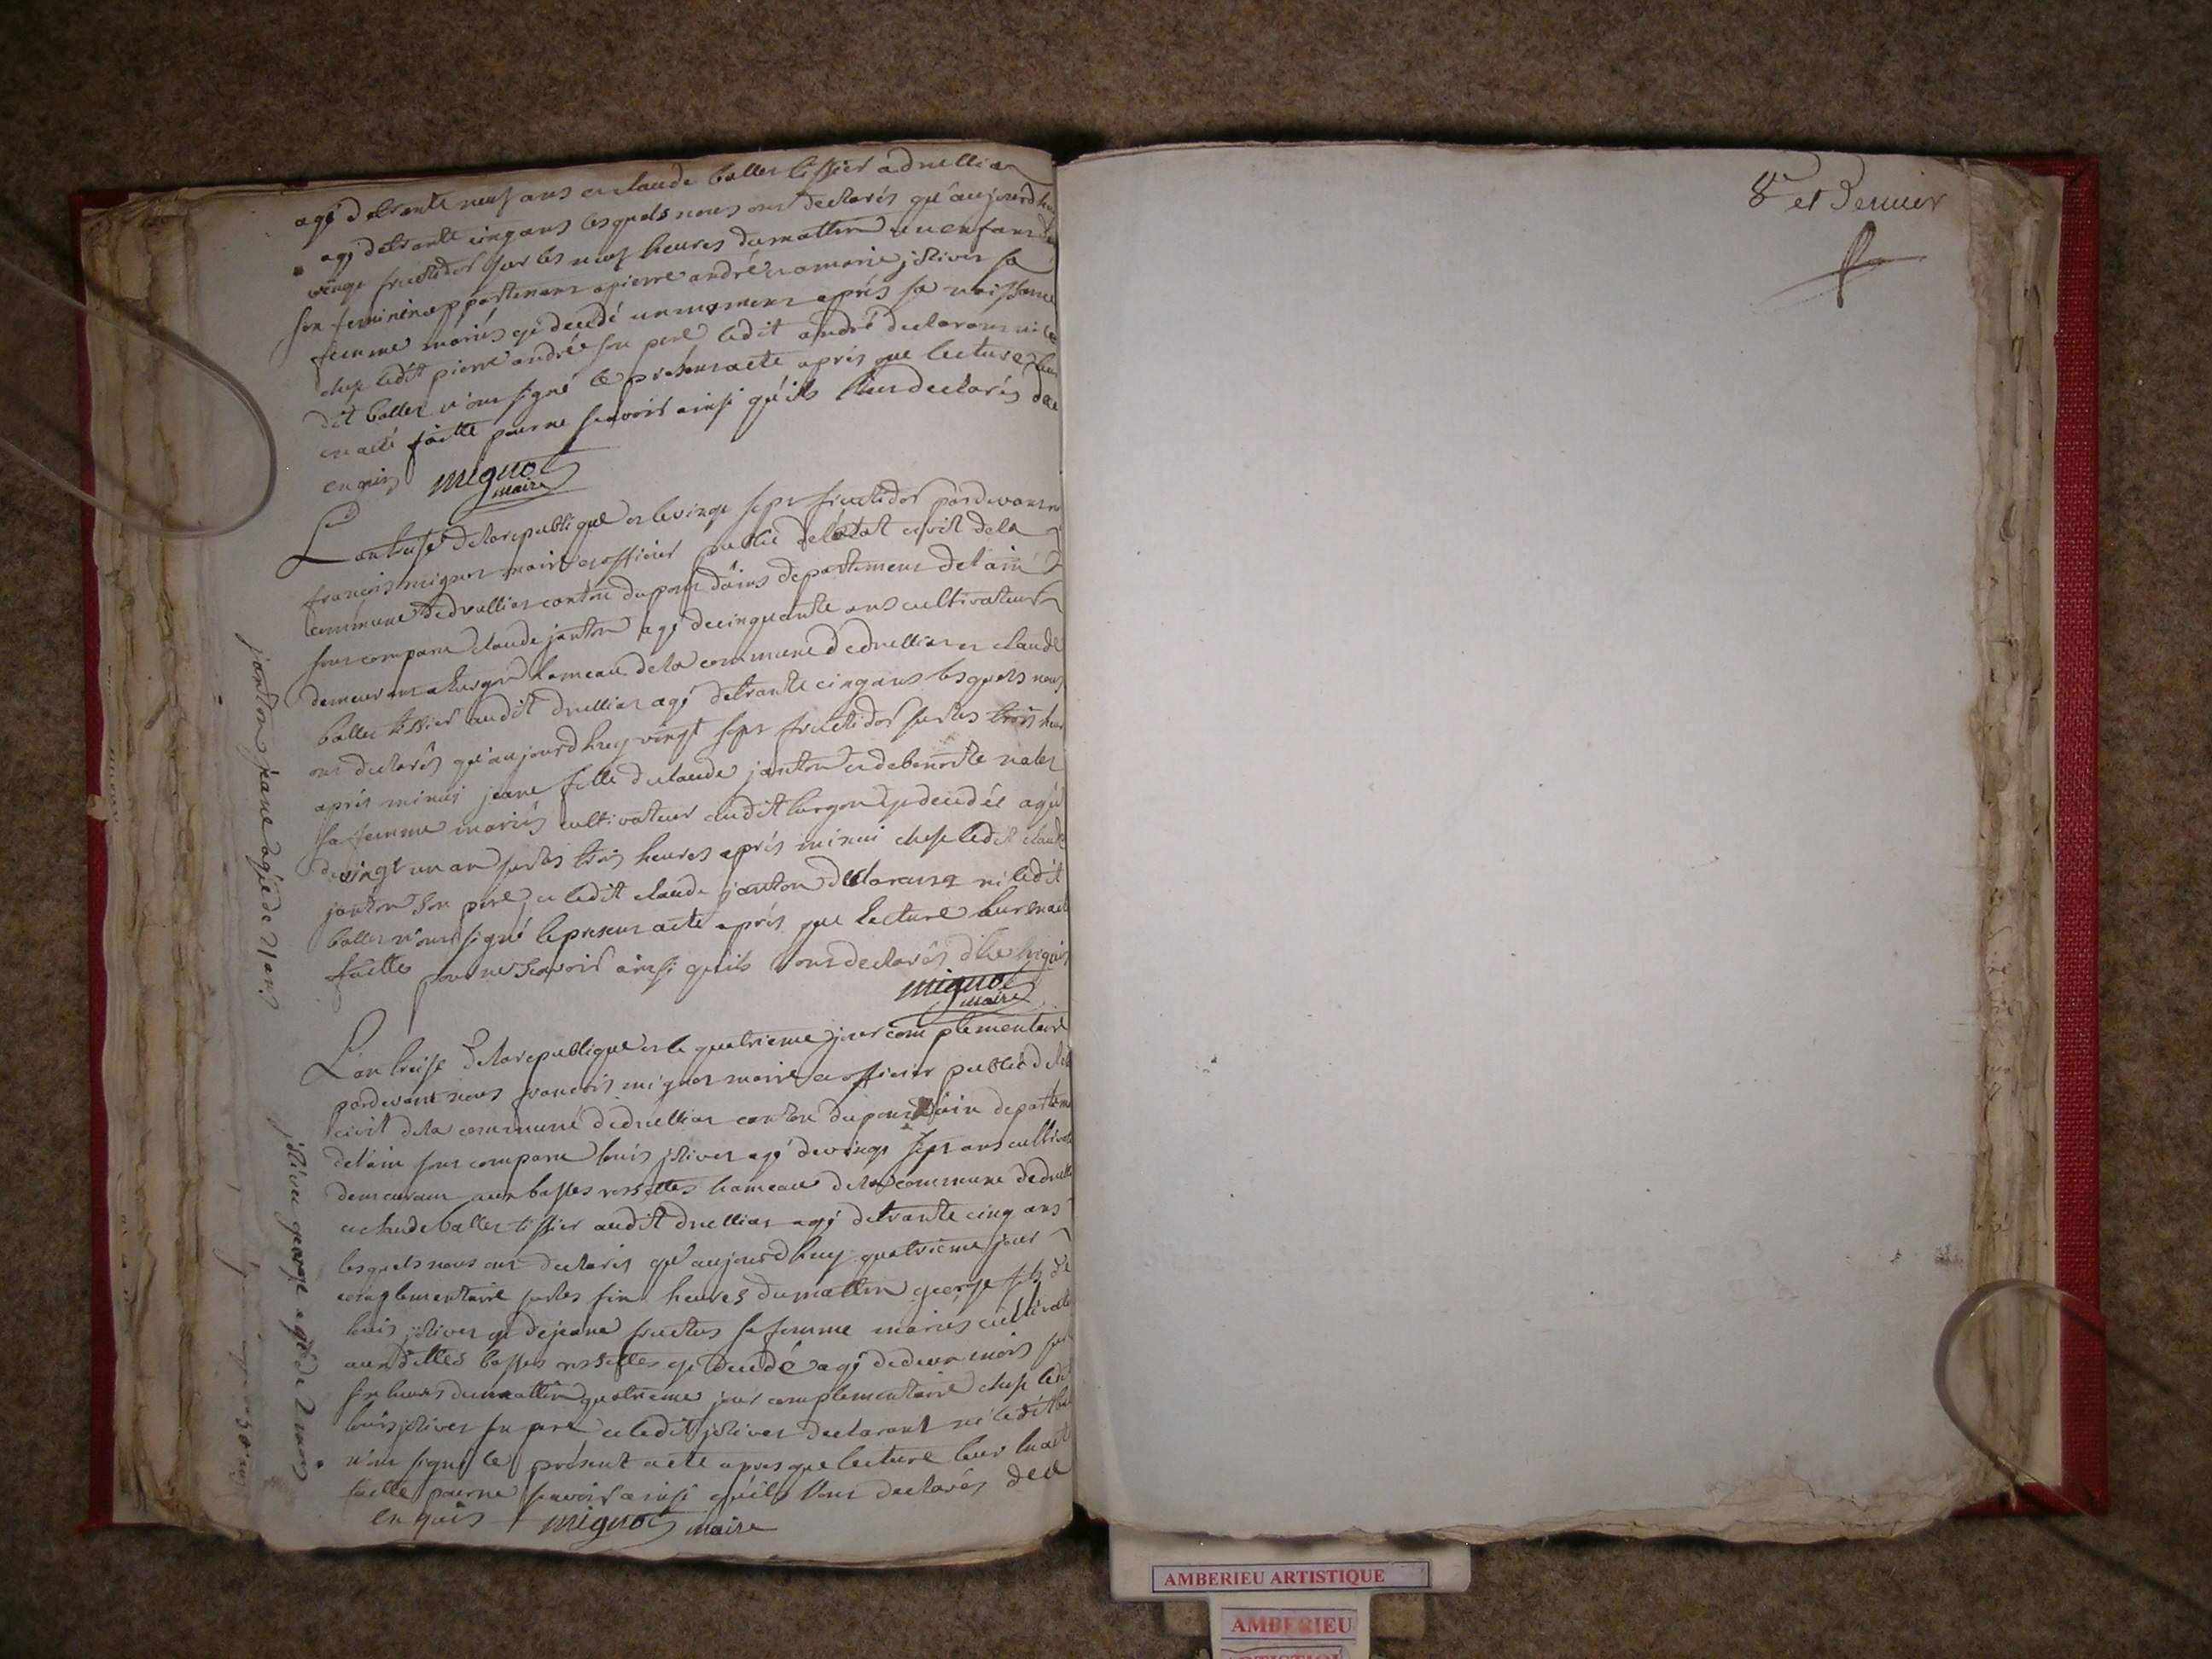 agé detrante neuf ans et claude ballet tissier adruellia
agé detrante cinq ans lesquels nous ont declarés qu'aujourd'hui
vingt fructidor sur les neuf heures dumattin un enfant de
son feminin appartenant apierre andré et amarie jolivet sa
femme mariés et decedé un moment aprés sa naissance
chez ledit pierre andrée son pere ledit andré declarant ni le
dit ballet n'ont signé le présent acte aprés que lecture leur
en a eté faitte pour ne scavoir ainsi qu'ils l'ont declarés de ce
enquis mignot
maire
L'an treise delarepublique et le vingt sept fructidor pardevant nous
francois mignot maire et officier public deletat civil dela
commune dedruillia canton dupont dains departement delain
sont comparu claude janton agé decinquante ans cultivateur
demeurant a hameau dela commune dedruillia et claude
ballet tissier audit druillia agé detrante cinq ans lesquels nous
ont declarés qu'aujourdhuy vingt sept fructidor surles trois heures
aprés minui jeane fille declaude janton et debenoite
sa femme mariés cultivateur audit et decedée agée
devingt un an surles trois heures aprés minui chez ledit claude
janton son pere, et ledit claude janton declarant ni ledit
ballet n'ont signé le present acte aprés que lecture leur en a eté
faitte pour ne scavoir ainsi quils l'ont declarés dece enquis
mignot
maire
L'an treise delarepublique et le quatrieme jour complementaire
pardevant nous francois mignot maire et officier public deletat
civil dela commune dedruillia canton dupont dain departement
delain sont comparu louis jolivet agé devingt sept ans cultivateur
demeurant aux basses rossettes hameau dela commune dedruillia
et claude ballet tissier audit druillia agé detrante cinq ans
lesquels nous ont declarés qu'aujourdhuy quatrieme jour
complementaire surles six heures dumattin george fils de
louis jolivet et dejeane sa femme mariés cultivateur
auxdittes basses rossettes et decedé agé dedeux mois sur
six heures dumattin quatrieme jour complementaire chez ledit
louis jolivet son pere et ledit jolivet declarant ni ledit ballet
n'ont signé le présent acte apres que lecture leur en a eté
faitte pour ne scavoir ainsi qu'ils l'ont declarés dece
enquis mignot maire
janton jeane agée de 21 ans
jolivet george agé de 2 mois
8e et Dernier
AMBERIEU ARTISTIQUE
AMBERIEU
ARTISTIQUE